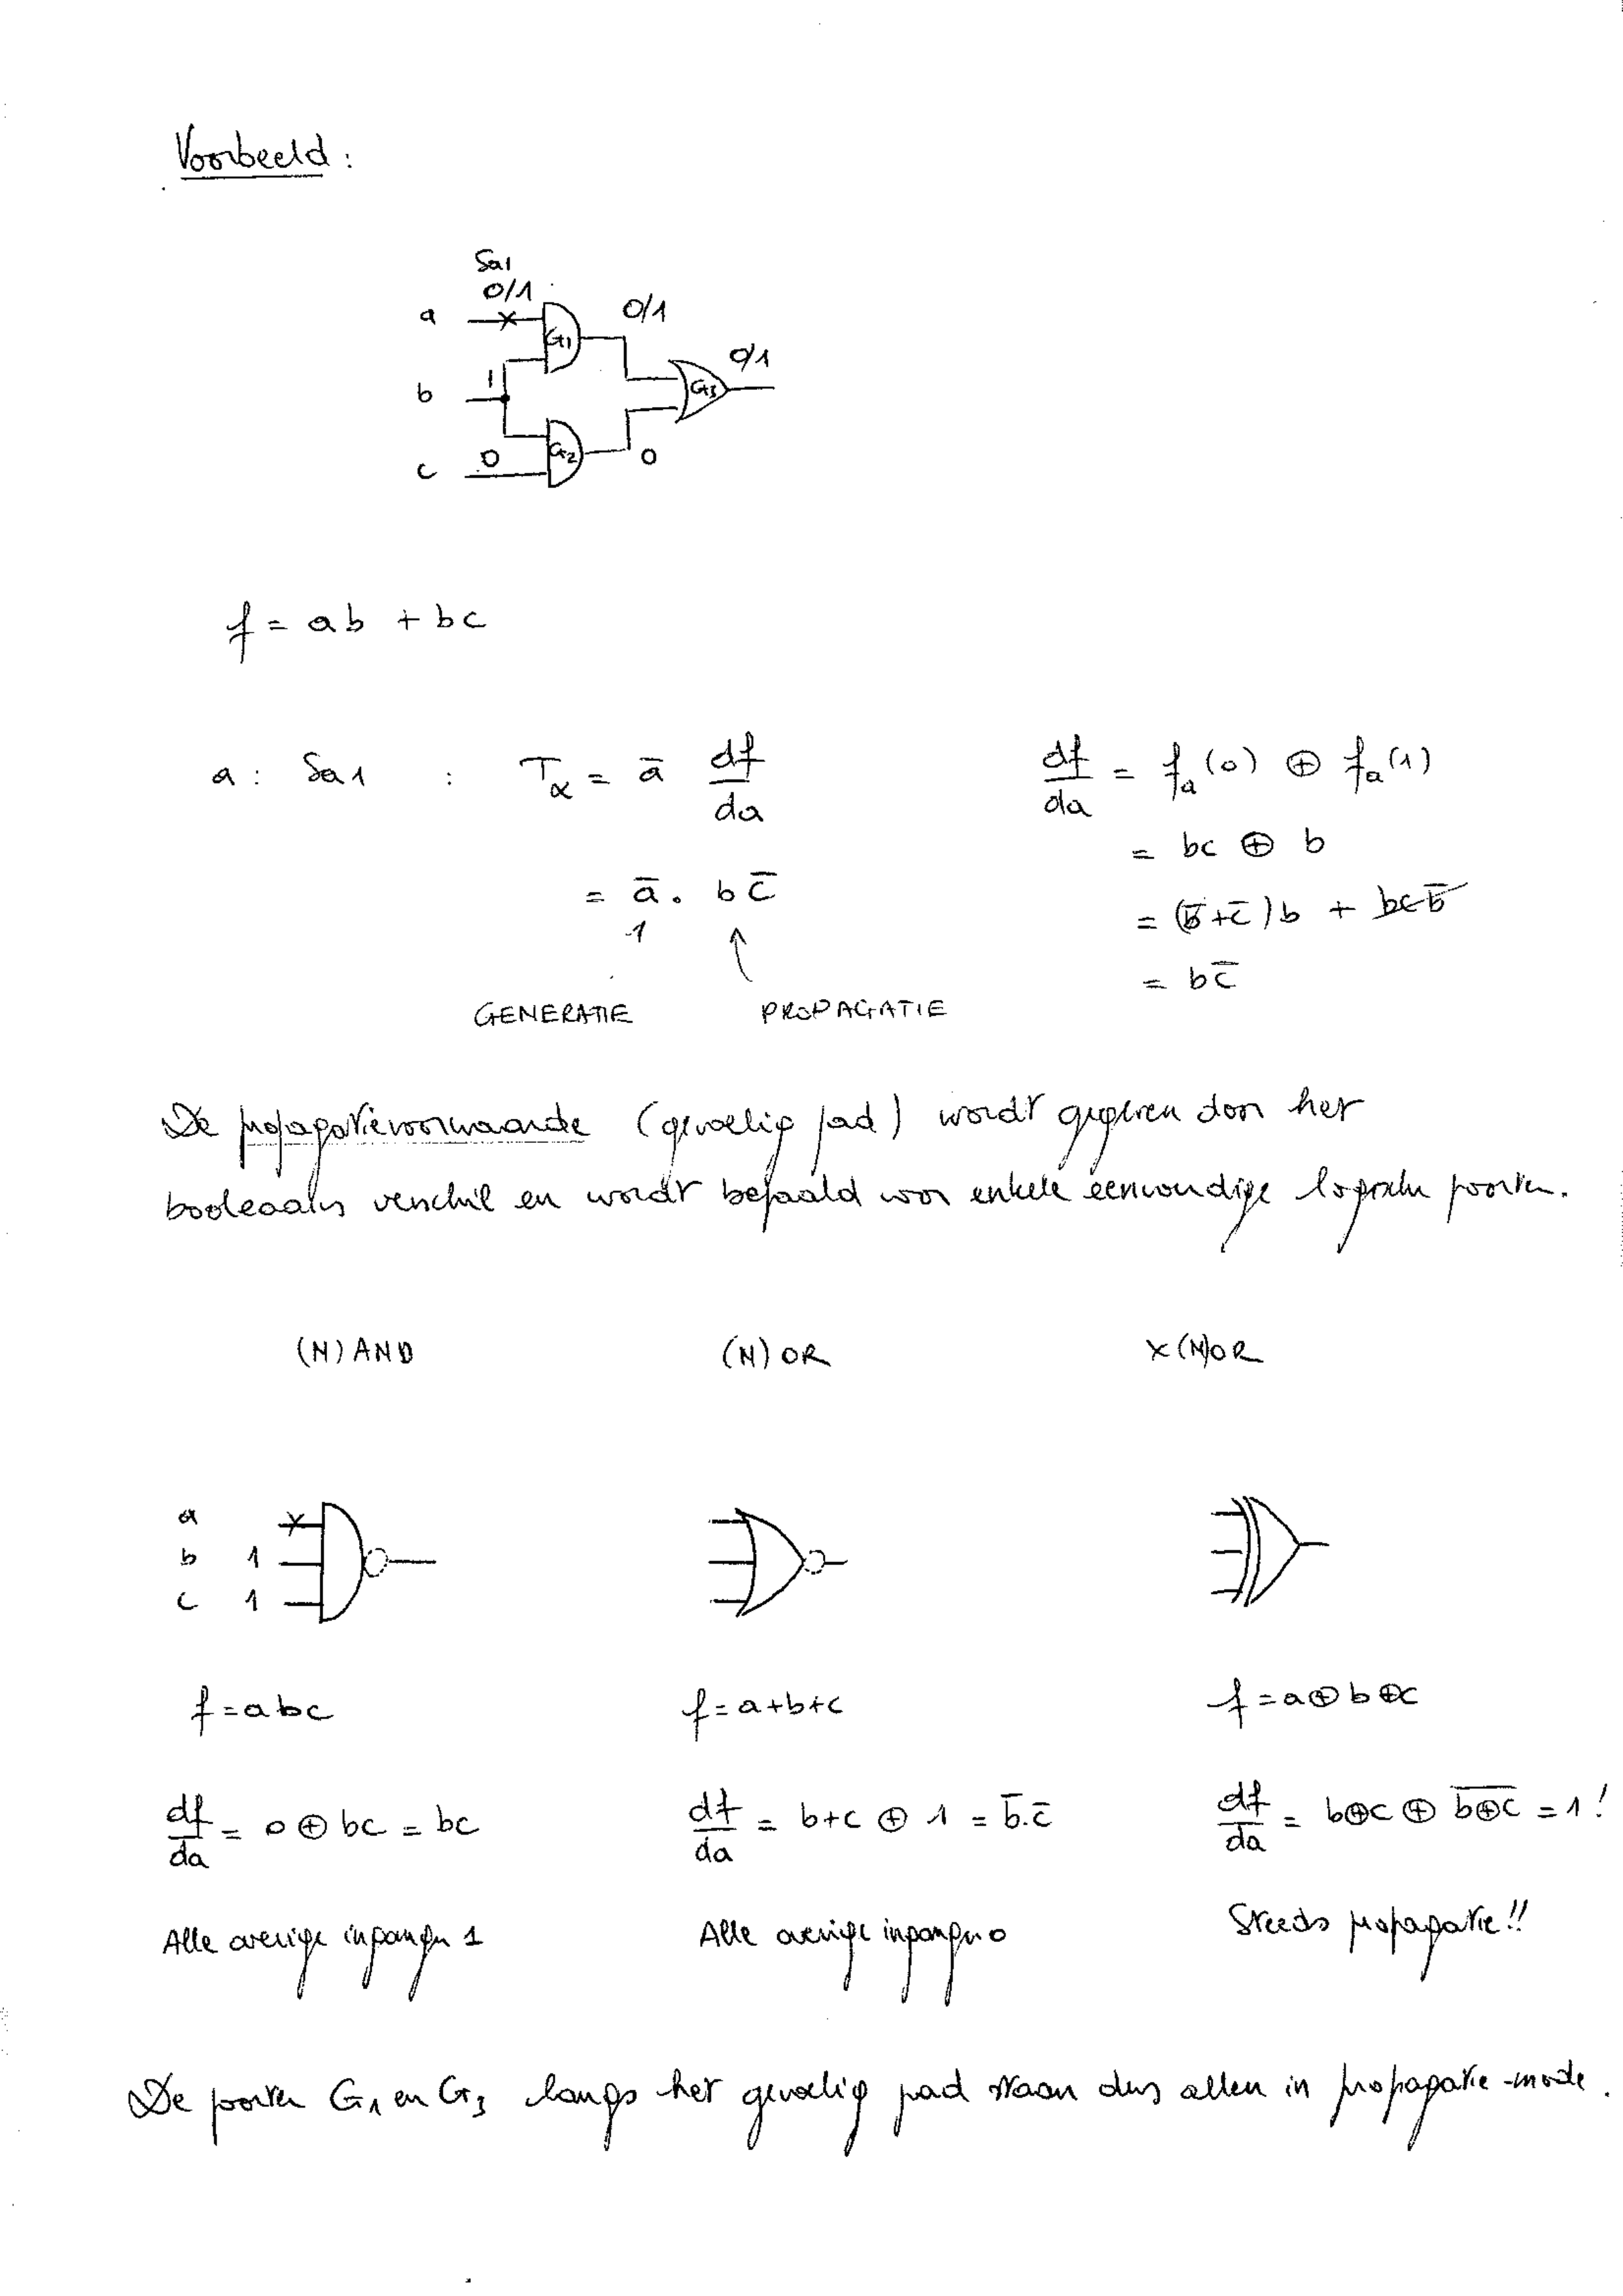 Voorbeeld :
Sa1
0/1
a
G1
0/1
0/1
b
1
G3
c
0
G2
0
f = ab + bc
a : Sa1 : Tα = a̅ df/da
df/da = fa(0) ⊕ fa(1)
= bc ⊕ b
= a̅ . b c̅
= (b̅+c̅)b + bcb̅
1
= b c̅
GENERATIE PROPAGATIE
De propagatievoorwaarde (gevoelig pad) wordt gegeven door het
booleaans verschil en wordt bepaald voor enkele eenvoudige logische poorten.
(N) AND (N) OR X(N)OR
a
b 1
c 1
f = abc f = a+b+c f = a⊕b⊕c
df/da = 0 ⊕ bc = bc
df/da = b+c ⊕ 1 = b̅.c̅
df/da = b⊕c ⊕ b̅⊕̅c̅ = 1 !
Alle overige ingangen 1 Alle overige ingangen 0 Steeds propagatie!!
De poorten G1 en G3 langs het gevoelig pad staan dus allen in propagatie-mode.